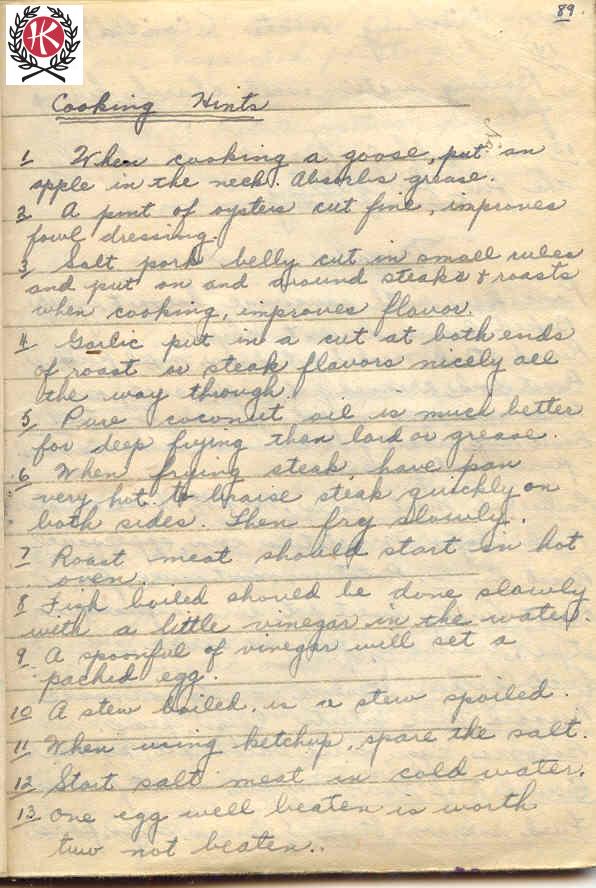 89.
HK
Cooking Hints
1 When cooking a goose, put an
apple in the neck. Absorbs grease.
2 A pint of oysters cut fine, improves
fowl dressing.
3 Salt pork belly cut in small cubes
and put on and around steaks & roasts
when cooking, improves flavor.
4 Garlic put in a cut at both ends
of roast or steak flavors nicely all
the way through.
5 Pure coconut oil is much better
for deep frying than lard or grease.
6 When frying steak have pan
very hot to braise steak quickly on
both sides. Then fry slowly.
7 Roast meat should start in hot
oven.
8 Fish boiled should be done slowly
with a little vinegar in the water.
9 A spoonful of vinegar will set a
poached egg.
10 A stew boiled, is a stew spoiled.
11 When using ketchup, spare the salt.
12 Start salt meat in cold water.
13 One egg well beaten is worth
two not beaten..